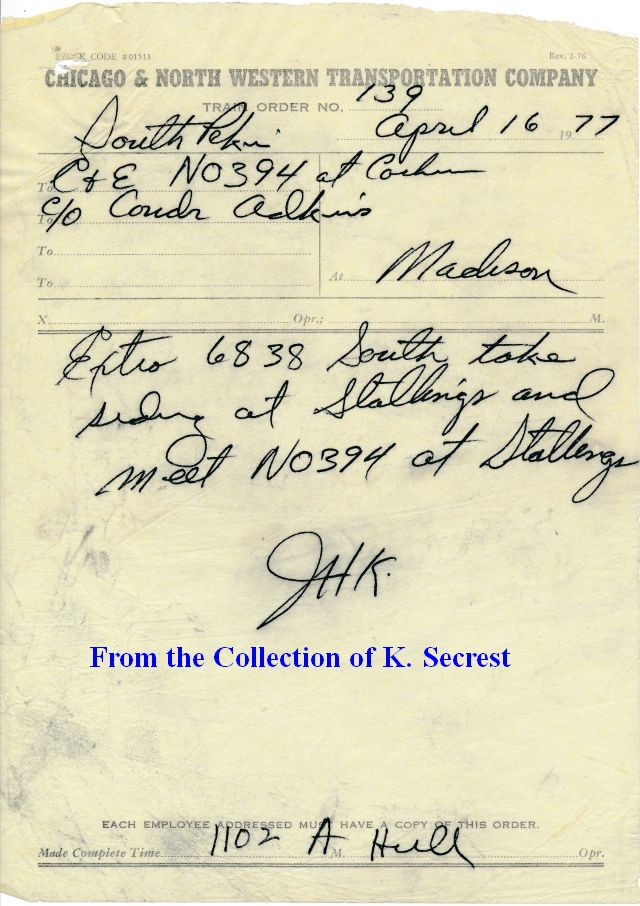 STOCK CODE #01513 Rev. 2-76
CHICAGO & NORTH WESTERN TRANSPORTATION COMPANY
TRAIN ORDER NO. 139
South Pekin April 16 1977
To C+E NO394 at
To c/o Condr Adkins
To
To At Madison
X Opr.; M.
Extra 6838 South take
siding at Stallings and
meet NO394 at Stallings
JHK.
From the Collection of K. Secrest
EACH EMPLOYEE ADDRESSED MUST HAVE A COPY OF THIS ORDER.
Made Complete Time 1102 A M. Hull Opr.